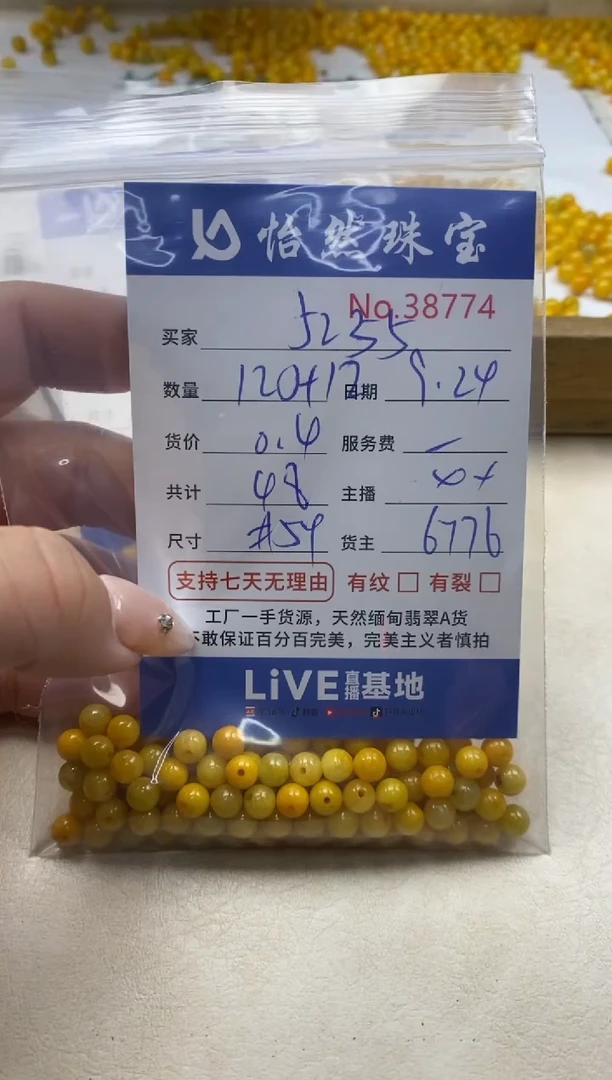 怡然珠宝
No.38774
买家 5255
数量 120+12 日期 9.24
货价 0.4 服务费 -
共计 48 主播
尺寸 #54 货主 6776
支持七天无理由 有纹 □ 有裂 □
工厂一手货源，天然缅甸翡翠A货
敢保证百分百完美，完美主义者慎拍
LiVE直播基地